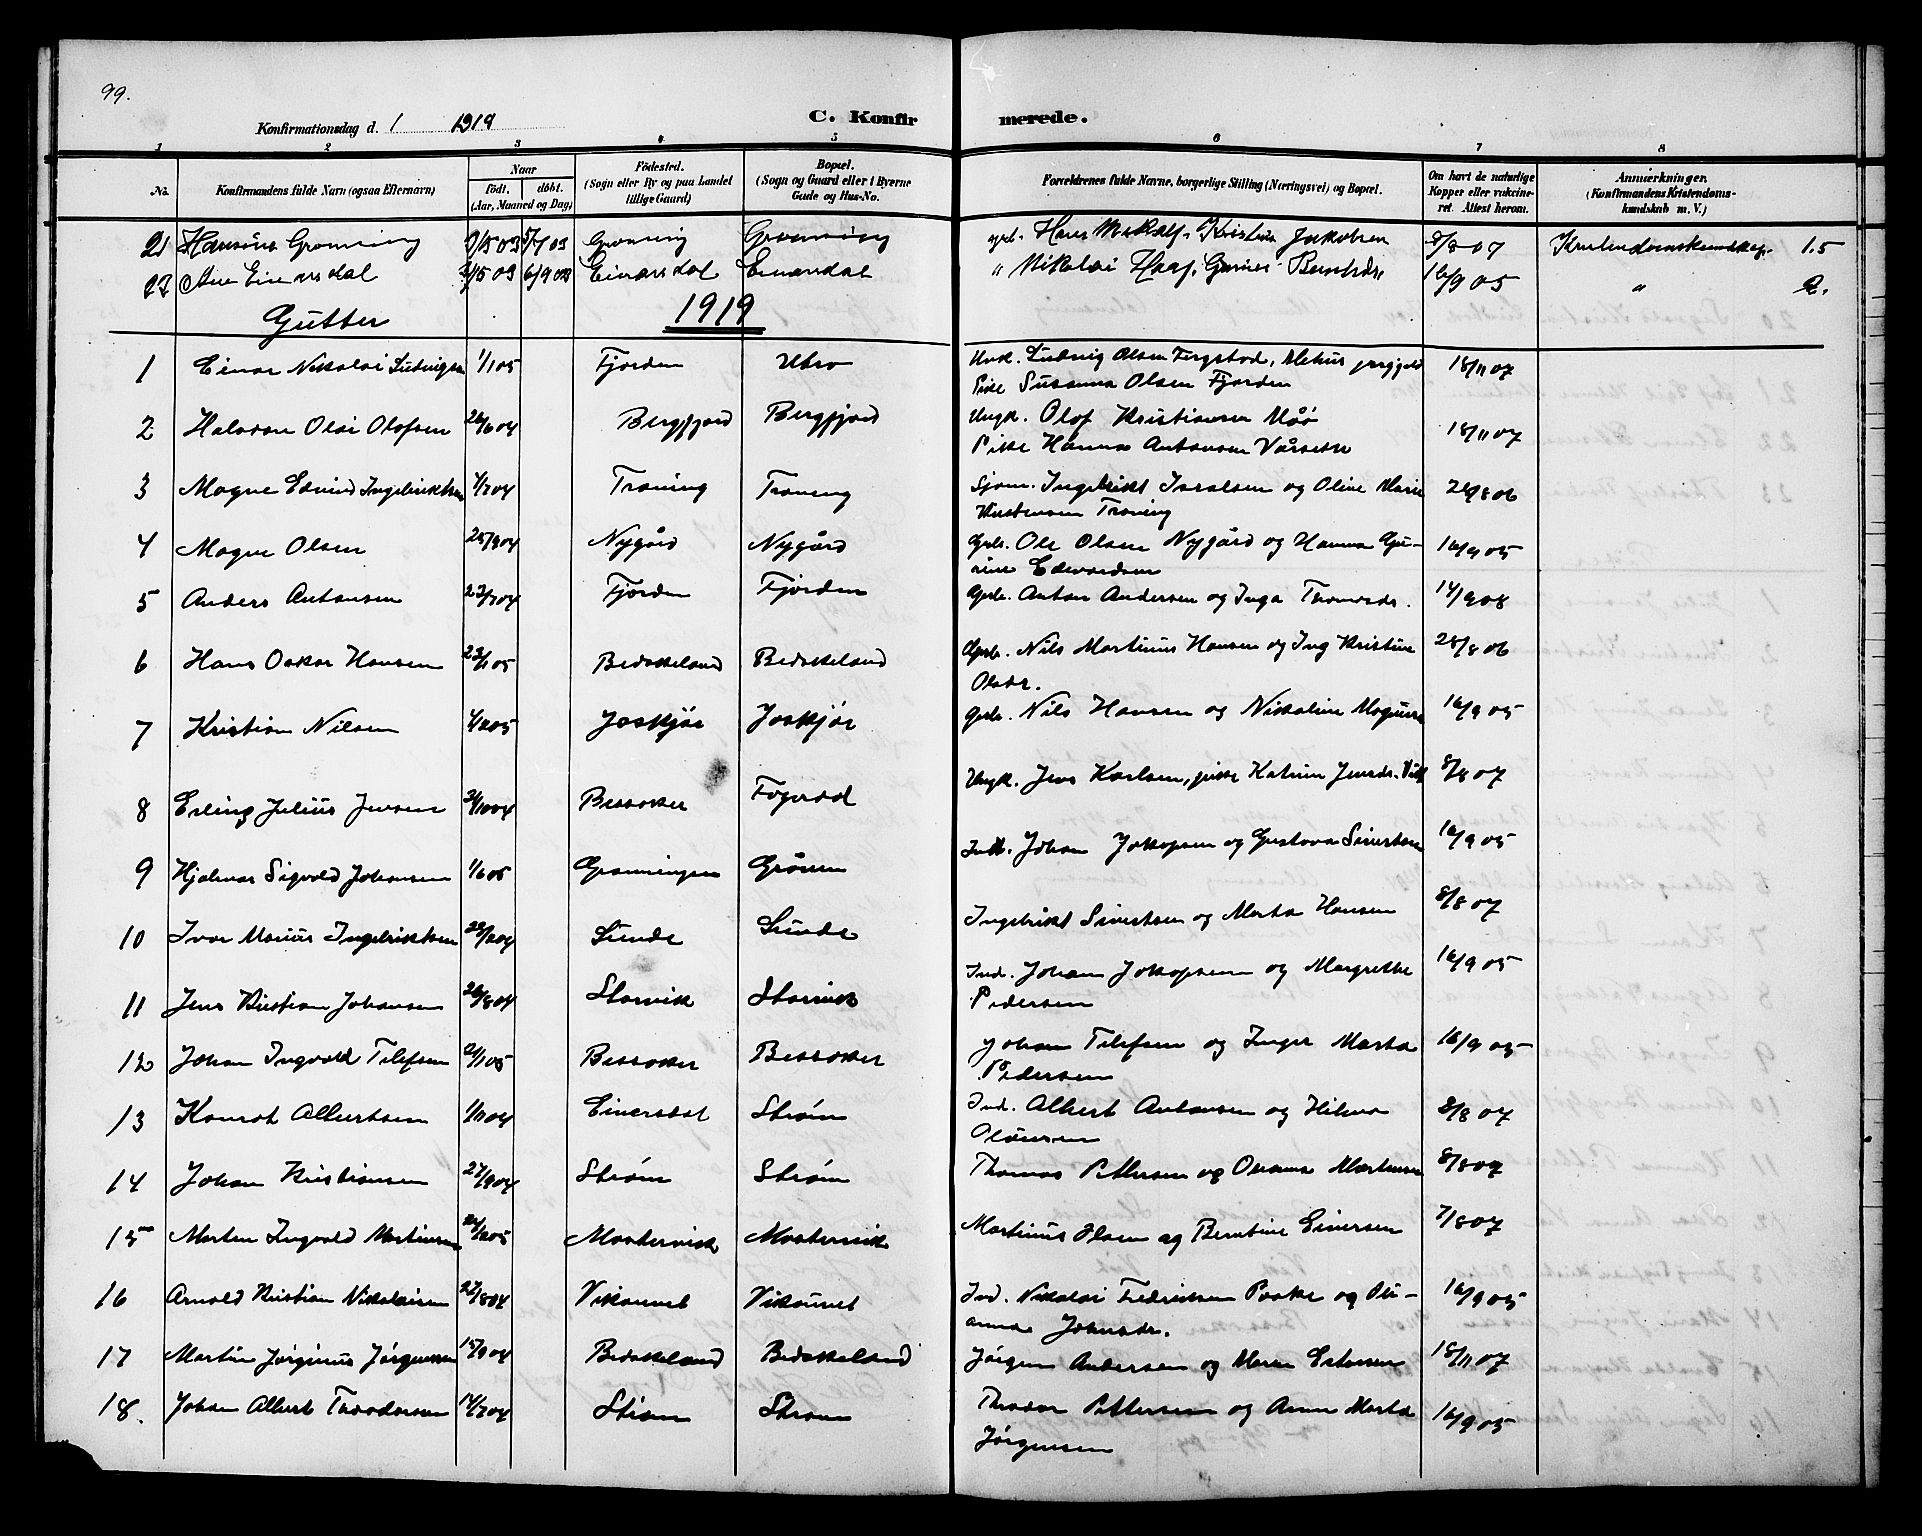 99.
Konfirmationsdag d. 1 1919 C. Konfirmerede.
1 2 3 4 5 6 7 8
No. Konfirmandens fulde Navn (ogsaa Efternavn) Naar födt. döbt. (Aar, Maaned og Dag) Födested. (Sogn eller By og paa Landet tillige Gaard) Bopæl. (Sogn og Gaard eller i Byerne Gade og Hus-No. Forældrenes fulde Navne, borgerlige Stilling (Næringsvei) og Bopæl. Om havt de naturlige Kopper eller vaccineret. Attest herom. Anmærkninger. (Konfirmandens Kristendomskundskab m. V.)
21 Gronning 5/7 03 Gronning Gronning Hans Jakobsen 8/8 07 Kristendomskundskap. 1.5
22 Einarsdal 6/9 03 Einarsdal Einarsdal " Nikolai 16/9 05 " 2.
Gutter 1919
1 Einar Nikolai Ludvigsen 1/1 05 Fjorden Utro Unk. Ludvig Olsen 18/11 07
Pike Susanna Olsen Fjorden
2 Halvdan Olai Olofsen 26/6 04 Bergfjord Bergfjord Ungk. Olof Kristiansen 18/11 07
Pike Hanna Antonsen
3 Magne Edvind Ingebriktsen 4/7 04 Traning Traning Sjøm. Ingebrikt Israelsen og Oline Marie 26/8 06
Kristensen Traning
4 Magne Olsen 25/9 04 Nygård Nygård Grb. Ole Olsen Nygård og Hanna Gu- 16/9 05
rine Edvardsen
5 Anders Antonsen 23/7 04 Fjorden Fjorden Grb. Anton Andersen og Inga Thomasdr. 14/9 08
6 Hans Oskar Hansen 23/1 05 Bedskeland Bedskeland Grb. Nils Martinus Hansen og Ing Kristine 28/8 06
Olsdr.
7 Kristian Nilsen 4/2 05 Joskjør Joskjør Grb. Nils Hansen og Nikoline 16/9 05
8 Erling Julius Jensen 31/10 04 Bessaker Ungk. Jens Karlsen, pike Katrine Jensdr. 8/8 07
9 Hjalmar Sigvald Johansen 1/6 05 Granningen Grönen Ind. Johan Jakopsen og Gustava Sivertsen 16/9 05
10 Ivar Marius Ingebriktsen Sunde Sunde Ingebrikt Sivertsen og Marta Hansen 8/8 07
11 Jens Kristian Johansen 26/8 04 Storvik Storvik Ind. Johan Jakopsen og Margrethe 16/9 05
Pedersen
12 Johan Ingvald Tilefsen 21/1 05 Bessaker Bessaker Johan Tilefsen og Inger Marta 16/9 05
Pedersen
13 Konrat Albertsen 1/11 04 Einersdal Strøm Ind. Albert Antonsen og Hilma 8/8 07
14 Johan Kristiansen 27/9 04 Strøm Strøm Thomas Pettersen og Martinsen 8/8 07
15 Morten Ingvald Martinsen Mostervik Mostervik Martinus Olsen og Berntine Einersen 7/8 07
16 Arnold Kristian Nikolaisen 27/8 04 Vikaunet Vikaunet Ind. Nikolai Fredriksen og Oli- 16/9 05
anna Johnsdr.
17 Martin Jørginus Jørgensen 15/9 04 Bedskeland Bedskeland Jørgen Andersen og Maren Estensen 18/11 07
18. Johan Albert Theodorsen 14/7 04 Strøm Strøm Theodor Pettersen og Anne Marta 16/9 05
Jørgensen